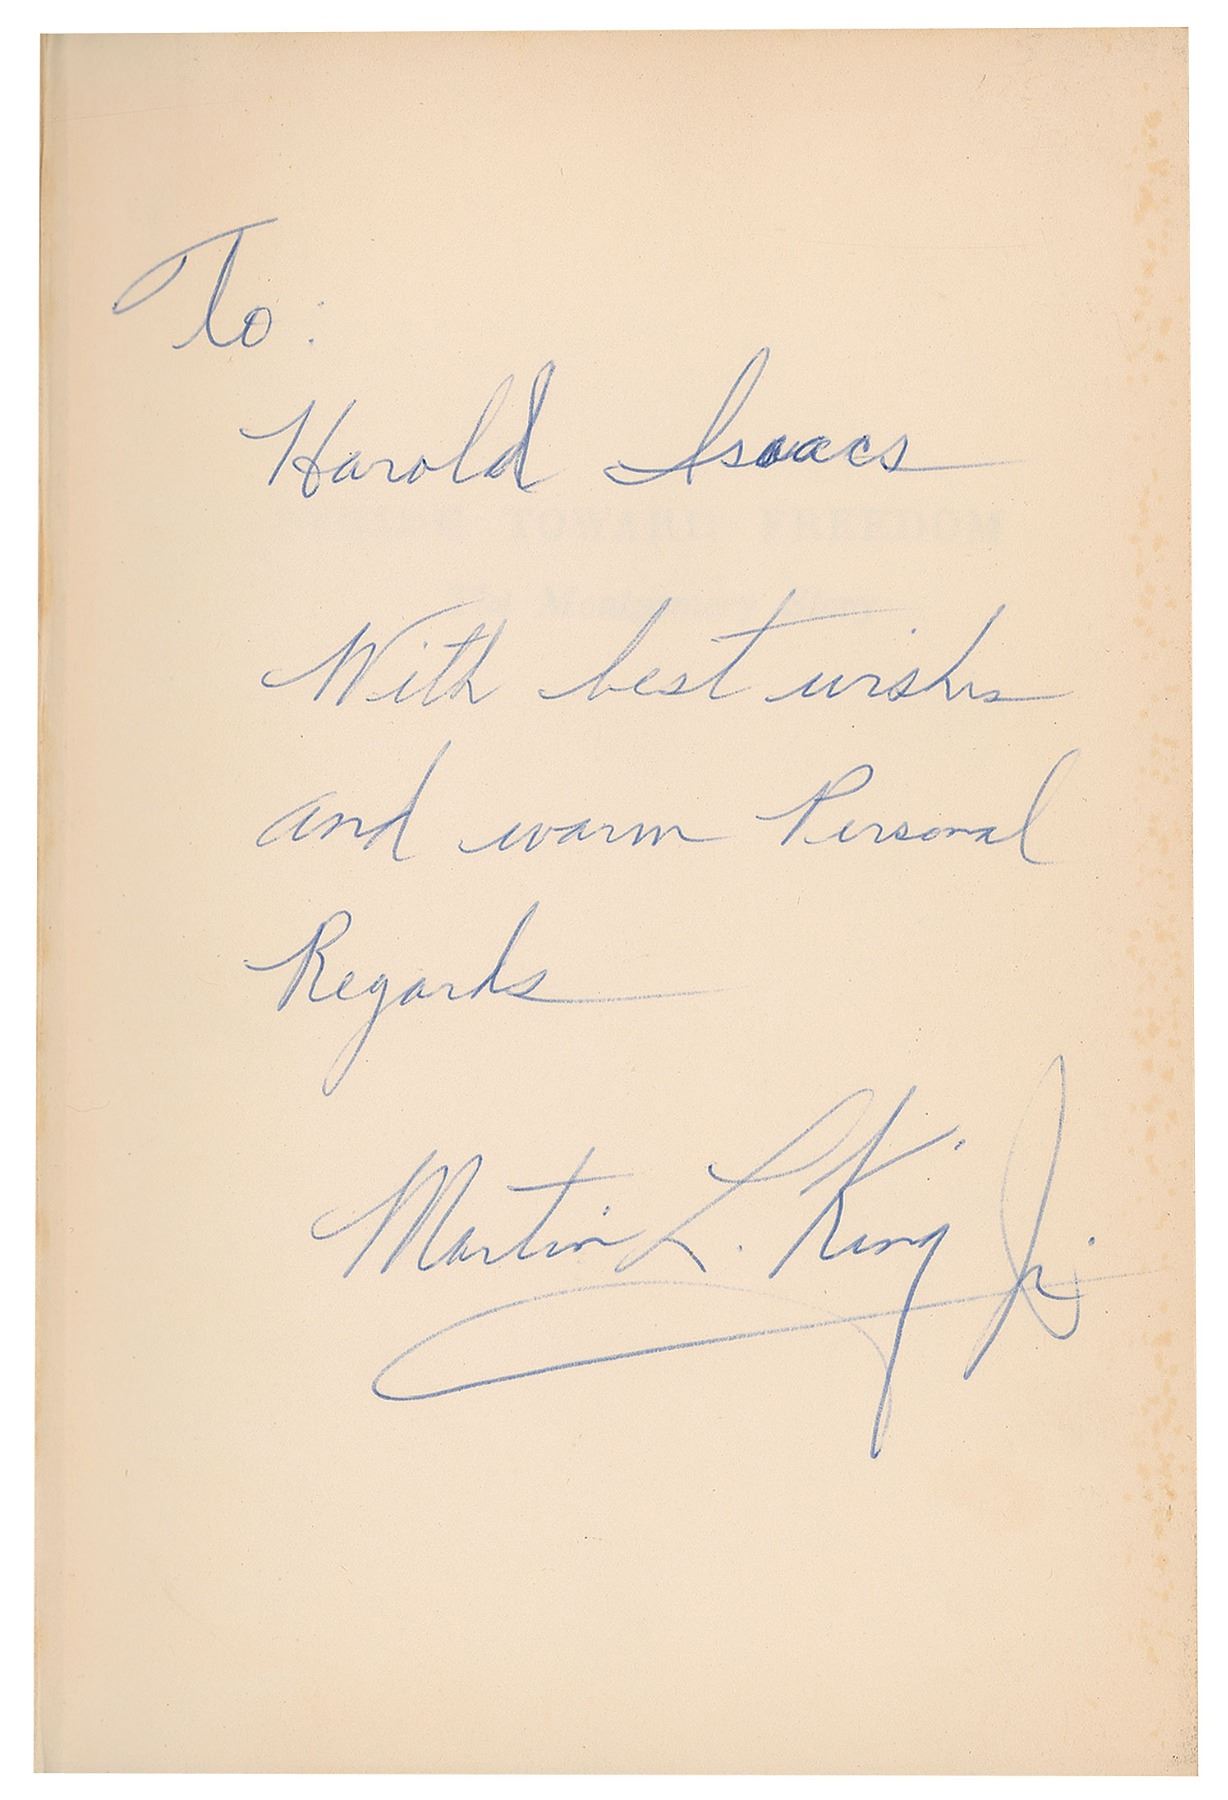 To:
Harold Isaacs
TOWARD FREEDOM
With best wishes
and warm Personal
Regards
Martin L. King Jr.